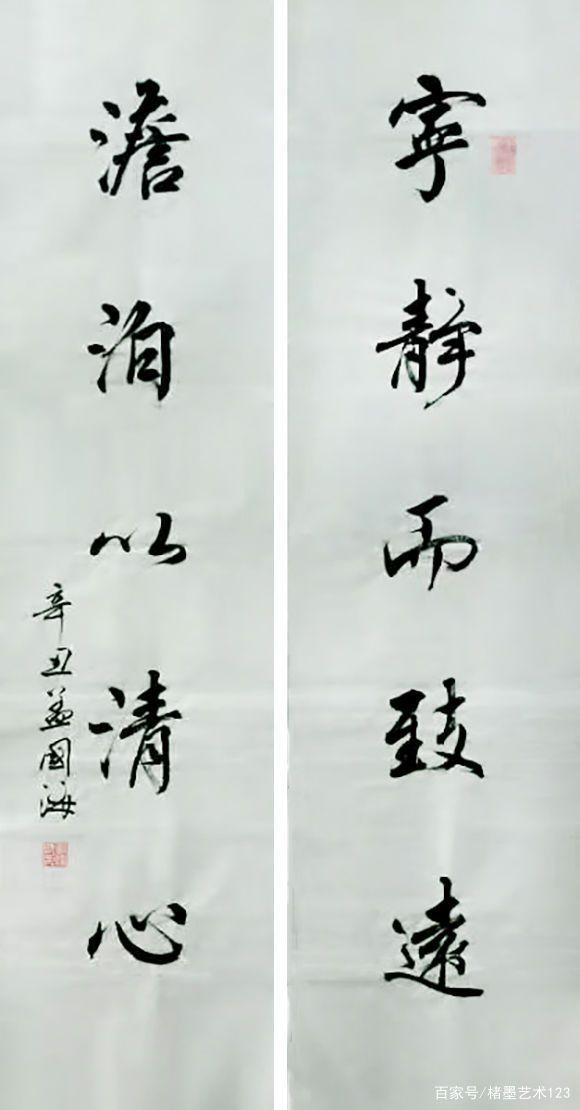 寧靜而致遠
澹泊以清心
辛丑孟國海
百家号/楮墨艺术123